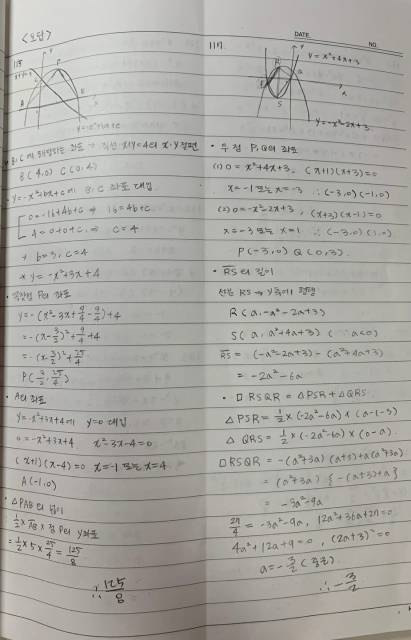 <오답>
115
x+y=4
y
P
A
B
x
y=-x²+bx+c
· B, C에 해당하는 좌표 → 직선 x+y=4의 x·y절편
B(4,0) C(0,4)
y=-x²+bx+c에 B, C 좌표 대입
0=-16+4b+c ⇒ 16=4b+c
4=0+0+c ⇒ c=4
→ b=3, c=4
* y=-x²+3x+4
· 꼭짓점 P의 좌표
y=-(x²-3x+9/4-9/4)+4
=-(x-3/2)²+9/4+4
=-(x-3/2)²+25/4
P(3/2, 25/4)
· A의 좌표
y=-x²+3x+4에 y=0 대입
0=-x²+3x+4 x²-3x-4=0
(x+1)(x-4)=0 x=-1 또는 x=4
A(-1,0)
· △PAB의 넓이
1/2×AB×점 P의 y좌표
=1/2×5×25/4=125/8
∴ 125/8
DATE. NO.
117.
y=x²+4x+3
R
Q
P
S
x
y=-x²-2x+3
· 두 점 P,Q의 좌표
(1) 0=x²+4x+3, (x+1)(x+3)=0
x=-1 또는 x=-3 ∴(-3,0)(-1,0)
(2) 0=-x²-2x+3, (x+3)(x-1)=0
x=-3 또는 x=1 ∴(-3,0)(1,0)
P(-3,0) Q(0,3)
· RS의 길이
선분 RS ⇒ y축에 평행
R(a, -a²-2a+3)
S(a, a²+4a+3) (∵a<0)
RS=(-a²-2a+3)-(a²+4a+3)
=-2a²-6a
· □RSQR=△PSR+△QRS
△PSR=1/2×(-2a²-6a)×(a-(-3)
△QRS=1/2×(-2a²-6a)×(0-a)
□RSQR=-(a²+3a)(a+3)+a(a²+3a)
=(a²+3a){-(a+3)+a}
=-3a²-9a
27/4=-3a²-9a, 12a²+36a+27=0
4a²+12a+9=0, (2a+3)²=0
a=-3/2 (중근)
∴-3/2